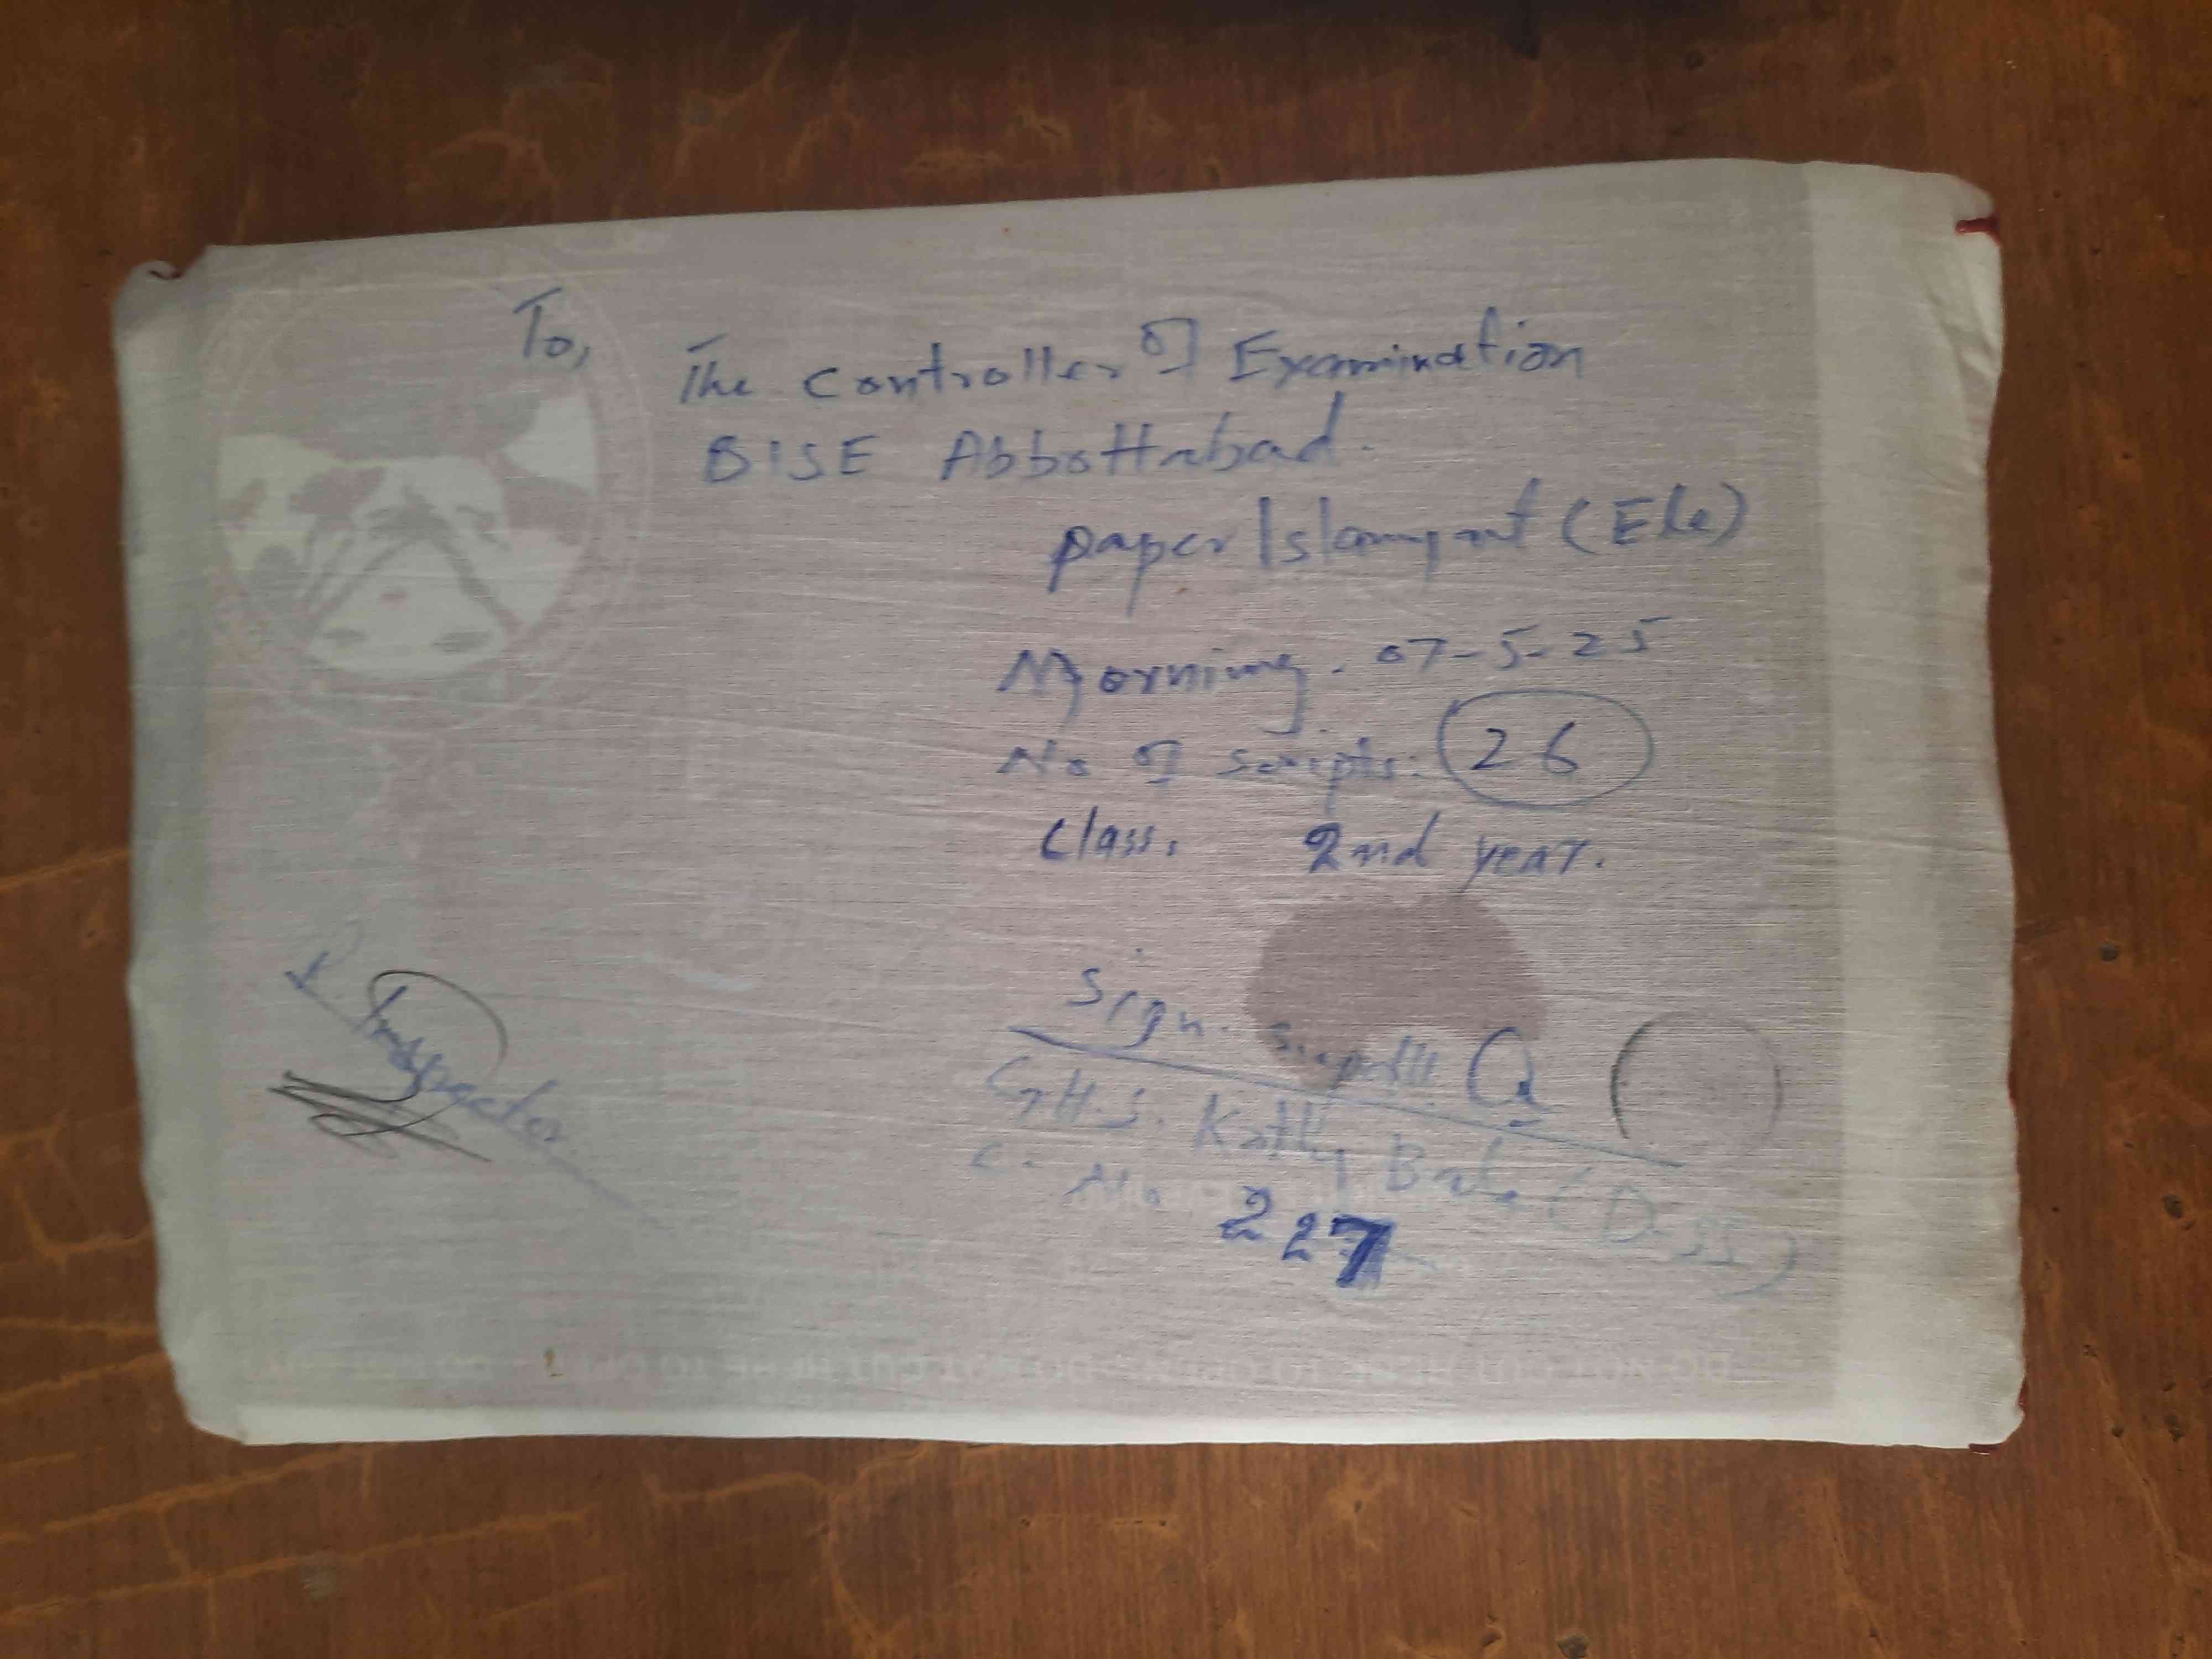 To,
The Controller of Examination
BISE Abbottabad.
paper Islamyat (Ele)
Morning. 07-5-25
No of scripts. 26
Class. 2nd year.
Sign.
R. Inspector
G.H.S.
C. No 227